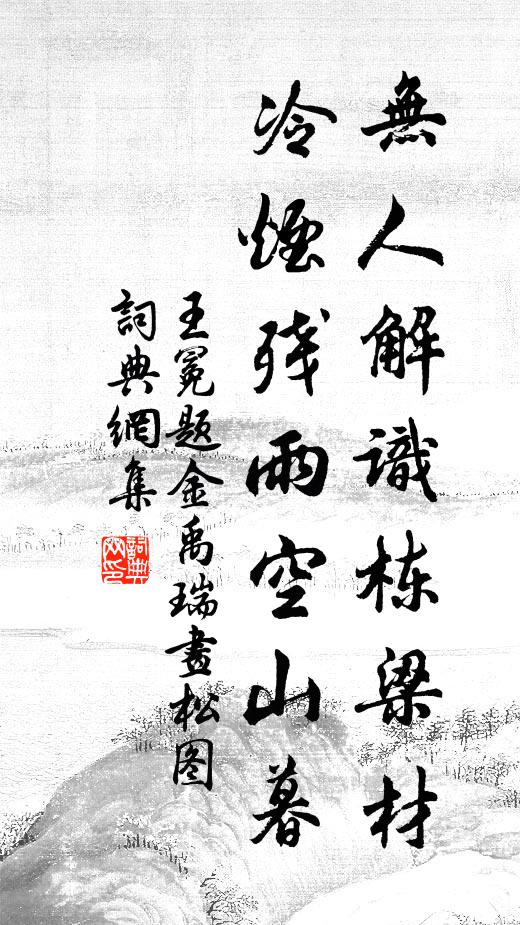 無人解識栋梁材
冷煙残雨空山暮
王冕题金禹瑞畫松图
詞典網集
詞典網印